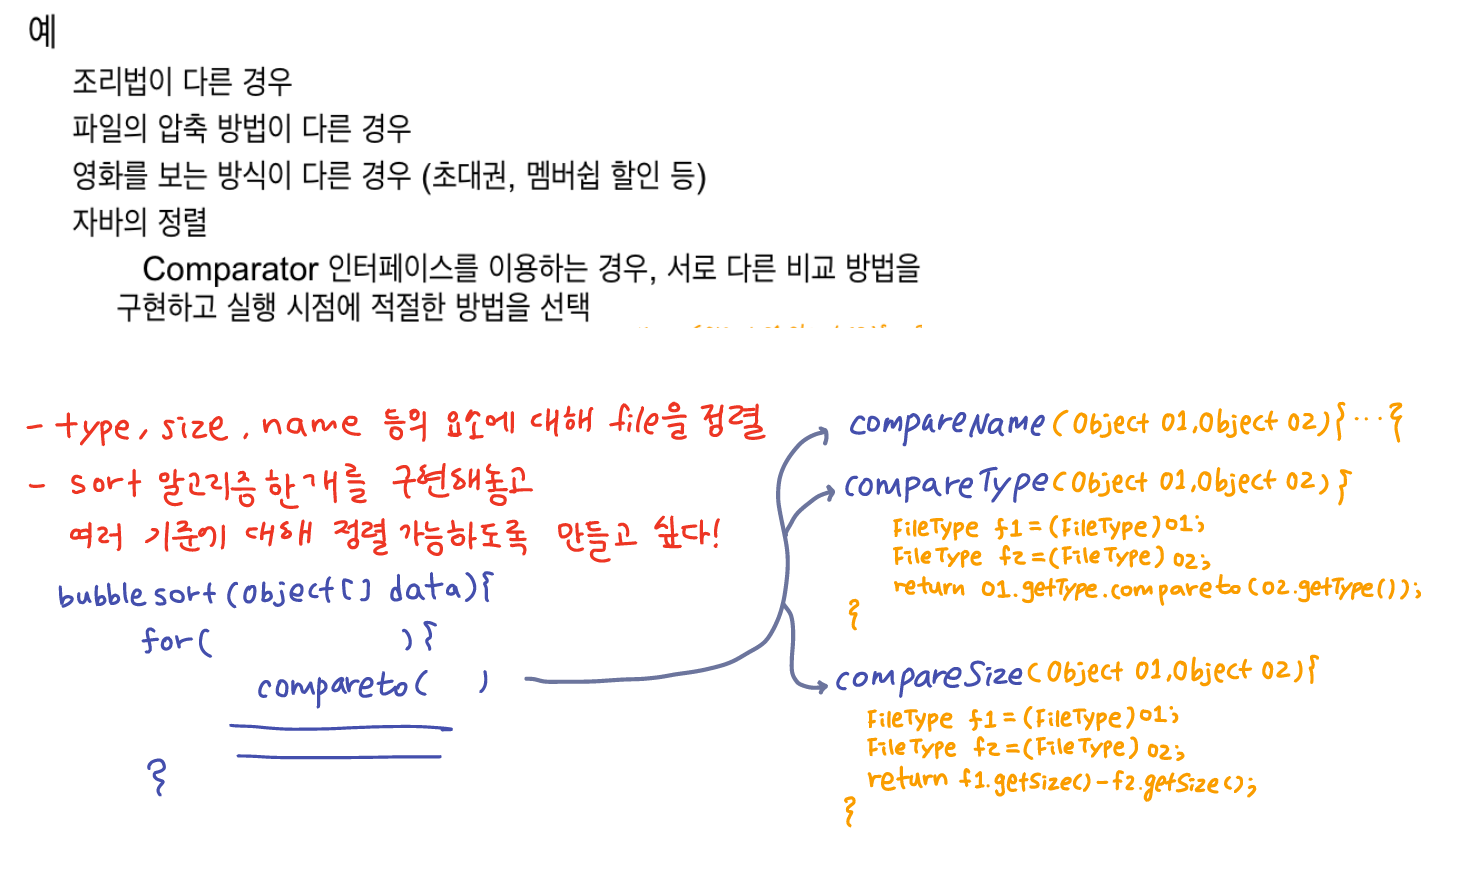 예
조리법이 다른 경우
파일의 압축 방법이 다른 경우
영화를 보는 방식이 다른 경우 (초대권, 멤버쉽 할인 등)
자바의 정렬
Comparator 인터페이스를 이용하는 경우, 서로 다른 비교 방법을
구현하고 실행 시점에 적절한 방법을 선택
- type, size, name 등의 요소에 대해 file을 정렬
- sort 알고리즘 한개를 구현해놓고
여러 기준에 대해 정렬 가능하도록 만들고 싶다!
bubble sort (Object[] data){
for( ){
compareto( )
}
compareName (Object o1, Object o2){ ... {
compareType (Object o1, Object o2){
FileType f1 = (FileType) o1;
FileType f2 = (FileType) o2;
return o1.getType.compareto (o2.getType());
}
compareSize (Object o1, Object o2){
FileType f1 = (FileType) o1;
FileType f2 = (FileType) o2;
return f1.getSize() - f2.getSize();
}